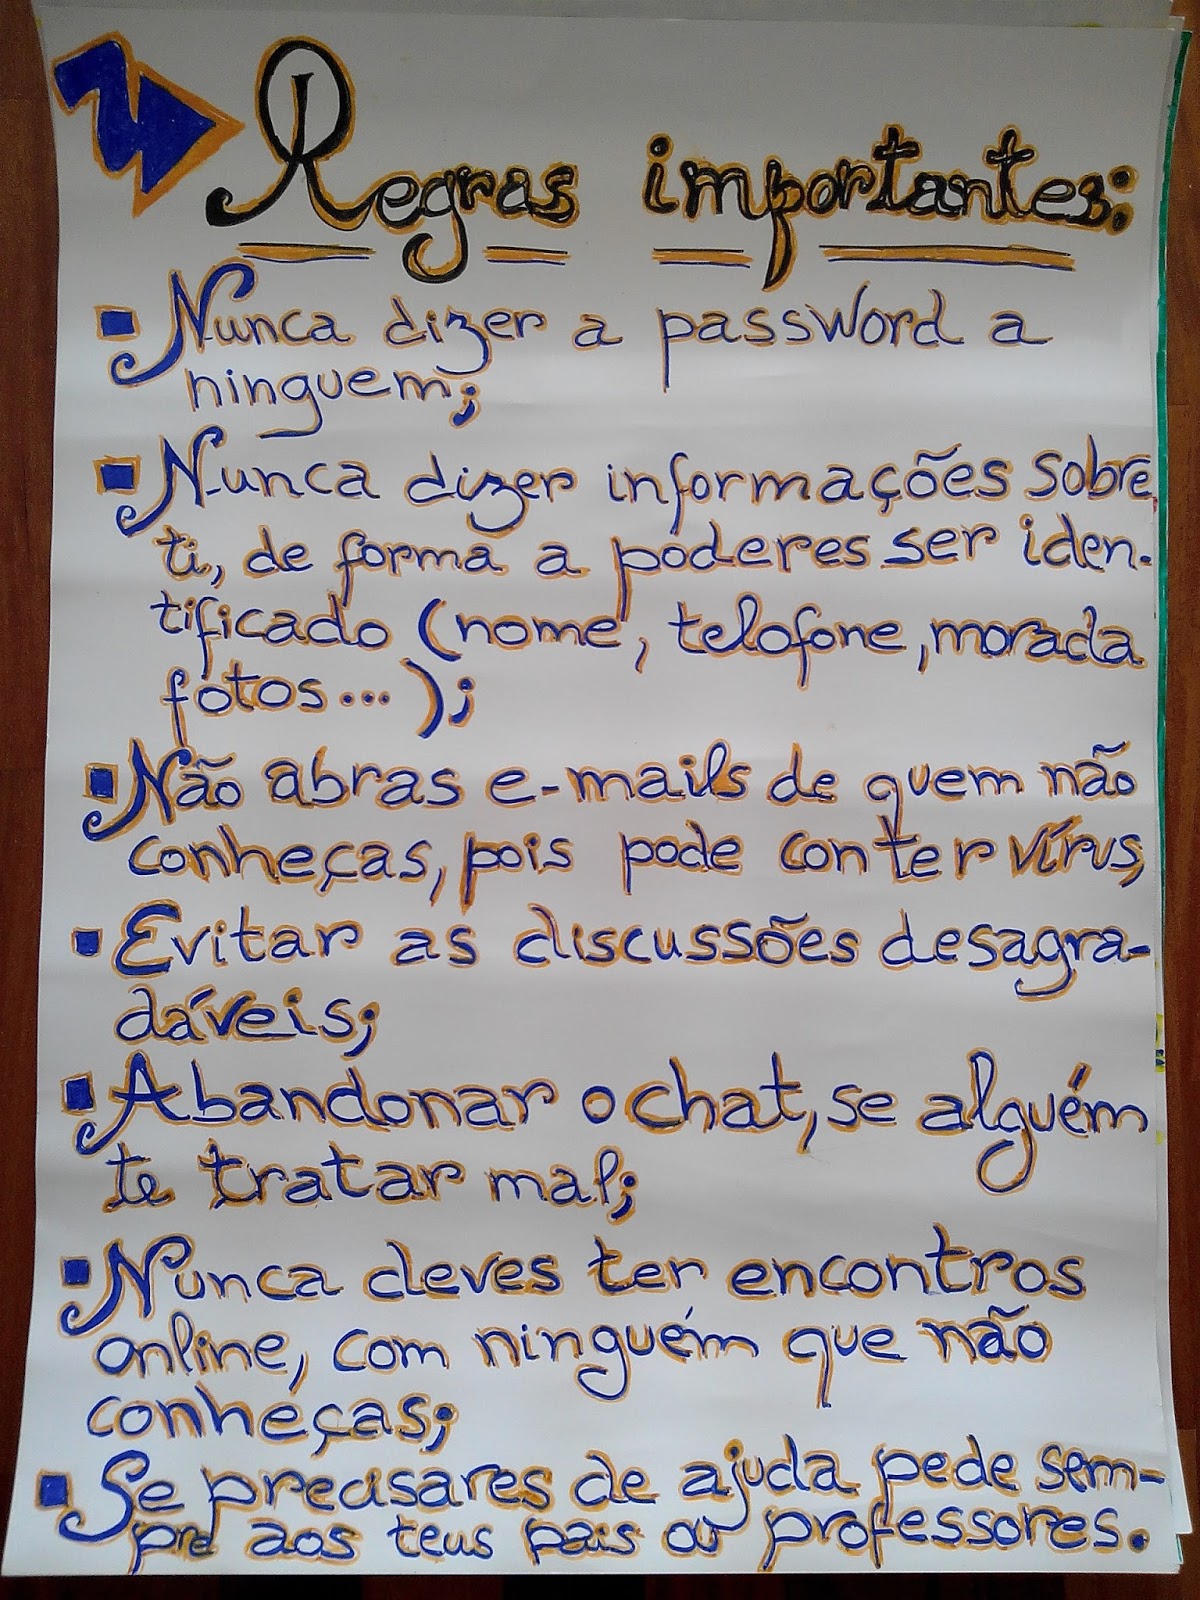 Regras importantes:
▪ Nunca dizer a password a
ninguem;
▪ Nunca dizer informações sobre
ti, de forma a poderes ser iden-
tificado (nome, telofone, morada
fotos...);
▪ Não abras e-mails de quem não
conheças, pois pode conter vírus,
▪ Evitar as discussões desagra-
dáveis;
▪ Abandonar o chat, se alguém
te tratar mal;
▪ Nunca deves ter encontros
online, com ninguém que não
conheças;
▪ Se precisares de ajuda pede sem-
pre aos teus pais ou professores.